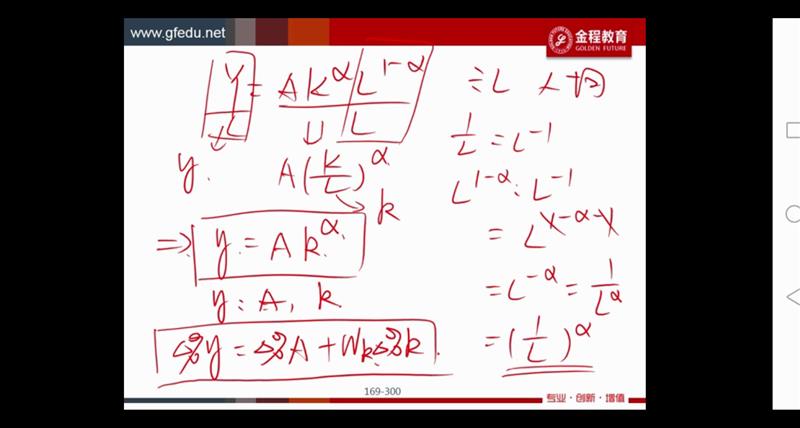 www.gfedu.net
金程教育
GOLDEN FUTURE
Y/L = AK^α L^(1-α) / L
÷L 人均
1/L = L^-1
y. A(K/L)^α
k
L^(1-α) · L^-1
⇒ y = A k^α
= L^(1-α-1)
y: A, k
= L^-α = 1/L^α
Δ%y = Δ%A + W_k Δ%k
= (1/L)^α
169-300
专业·创新·增值